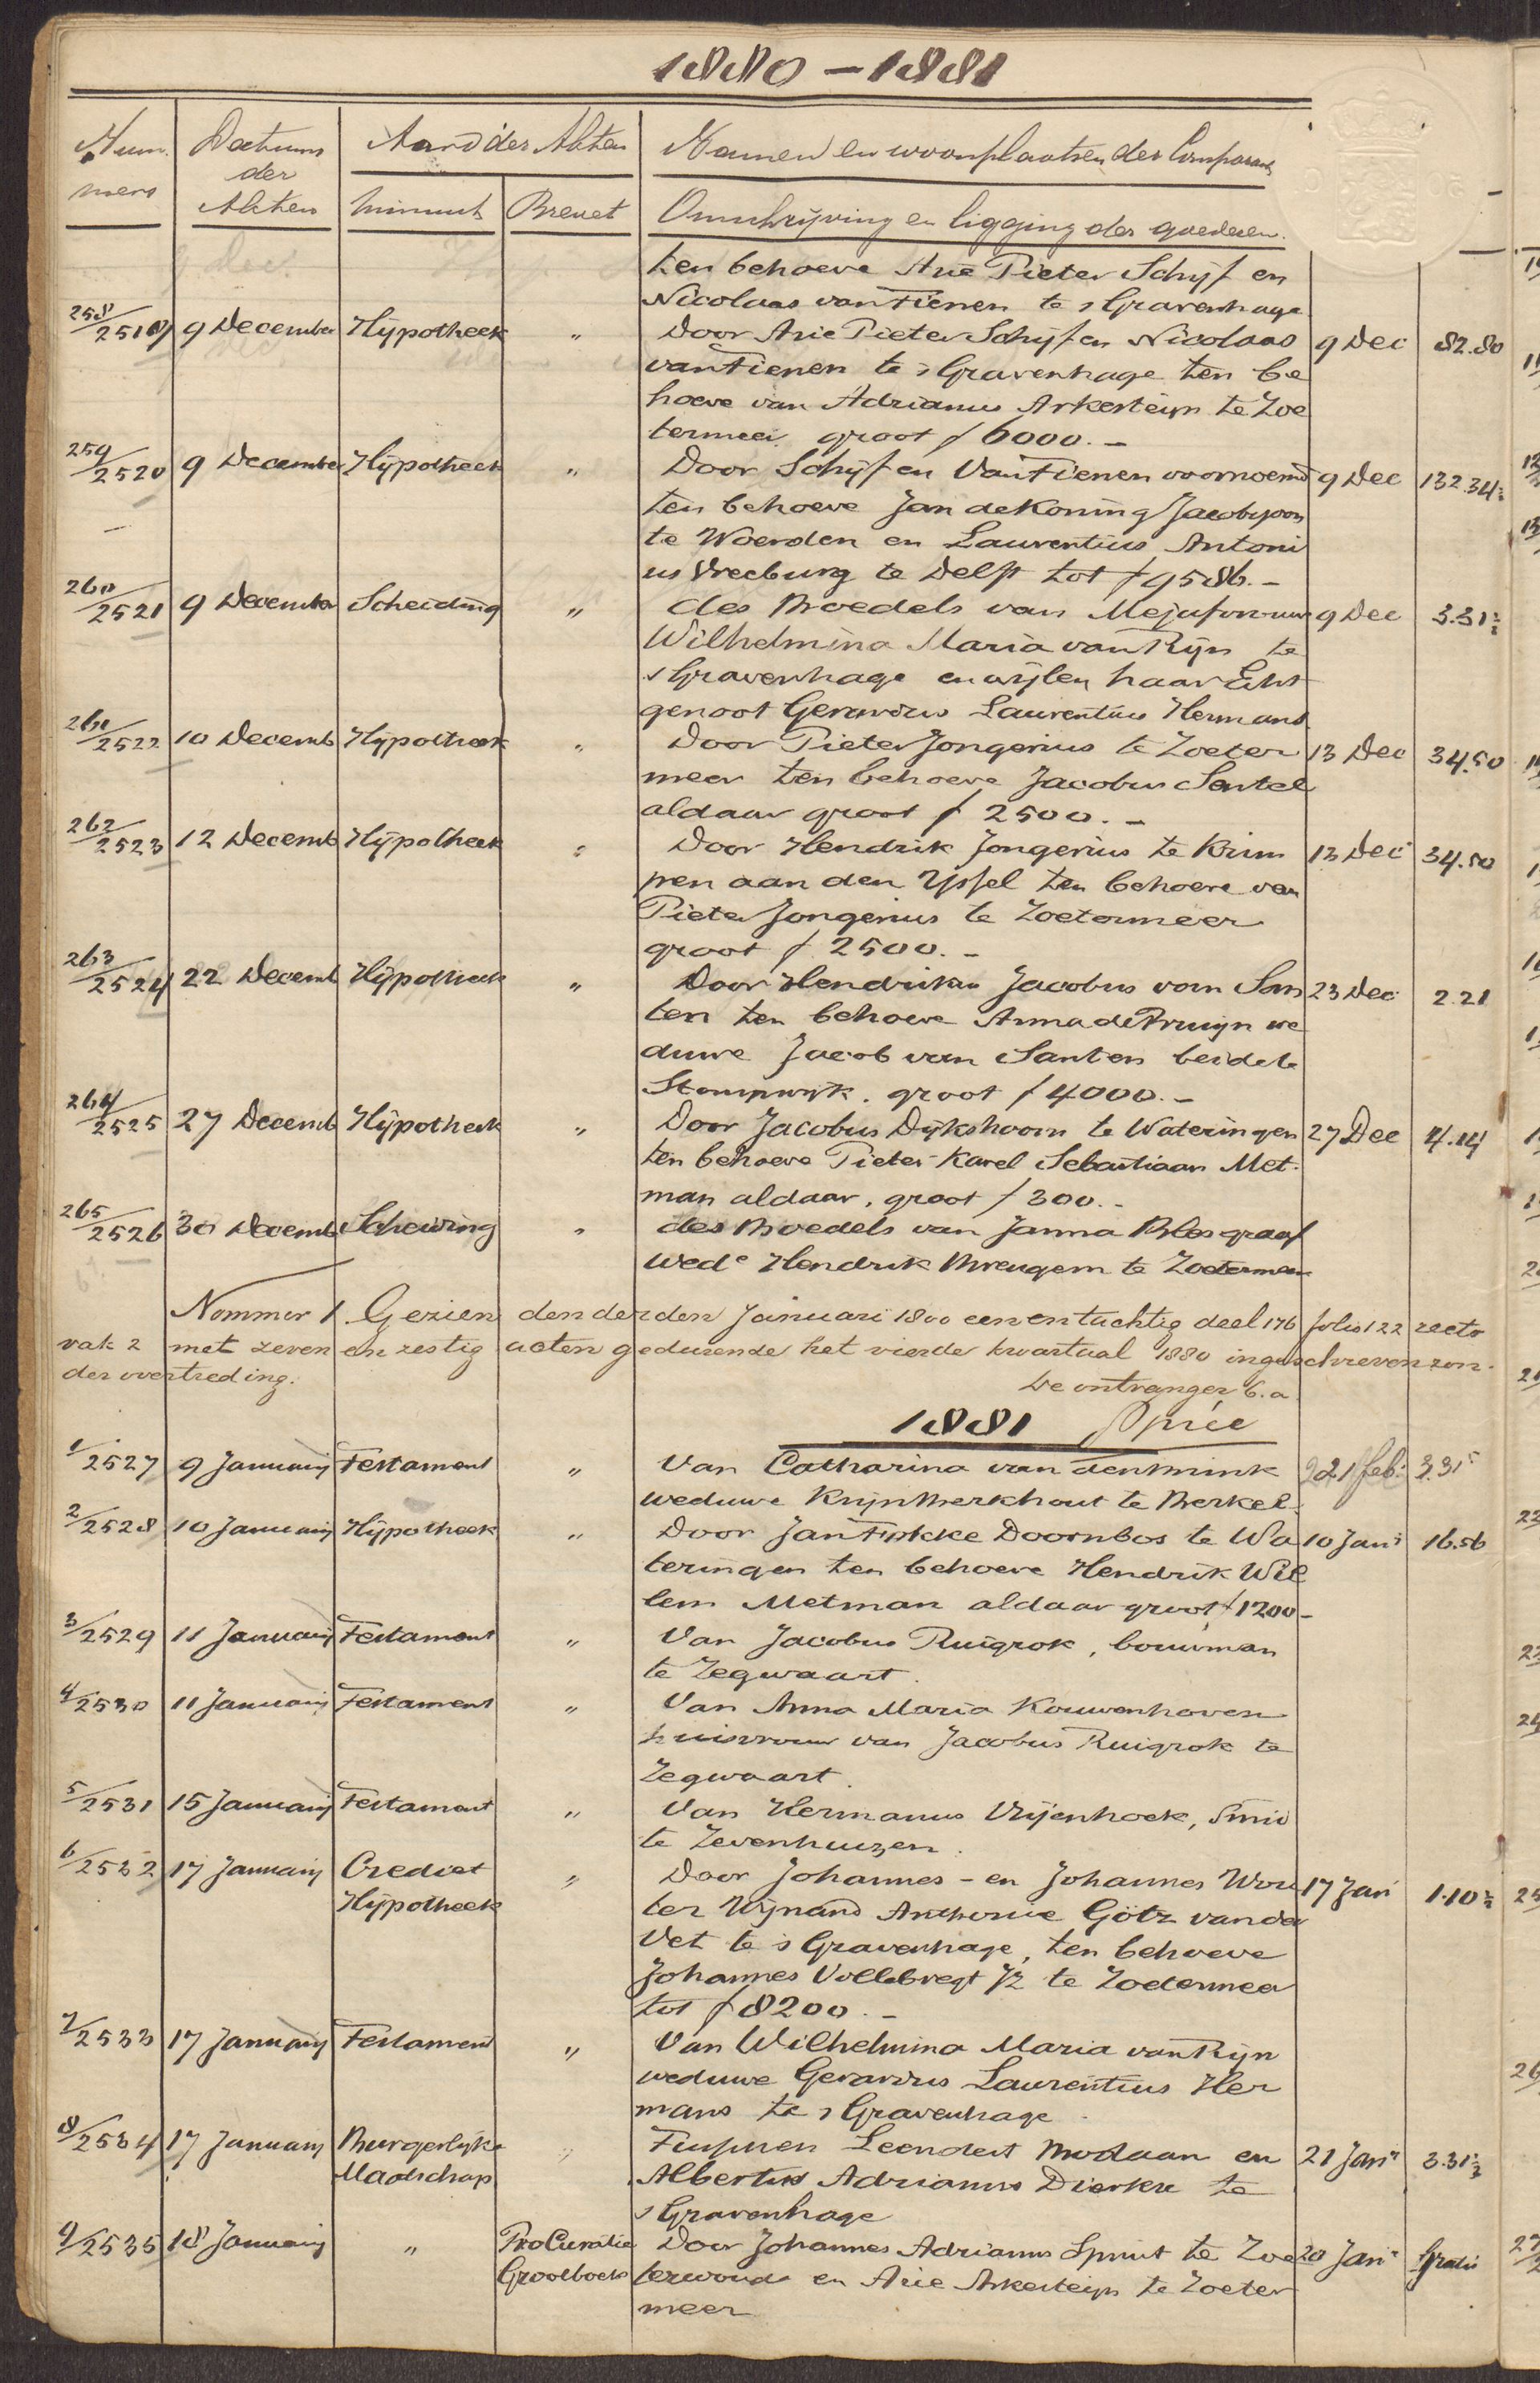 1880 - 1881
Num Datums Aard der Akten Namen en woonplaatsen der Comparant
mers der
Akten Minuut Brevet Omschrijving en ligging der goederen.
ten behoeve Arie Pieter Schijf en
Nicolaas van Tienen te sGravenhage
258/2519 9 December Hypotheek " Door Arie Pieter Schijf en Nicolaas 9 Dec 82.80
van Tienen te sGravenhage ten be
hoeve van Adrianus Arkesteijn te Zoe
termeer groot f 6000.-
259/2520 9 December Hypotheek " Door Schijf en Van Tienen voornoemd 9 Dec 132.34½
ten behoeve Jan de Koning Jacobszoon
te Woerden en Laurentius Antoni
us Vreeburg te Delft tot f 9586.-
260/2521 9 December Scheiding " des Boedels van Mejufvrouw 9 Dec 3.31½
Wilhelmina Maria van Rijn te
sGravenhage en wijlen haar Echt
genoot Gerardus Laurentius Hermans
261/2522 10 Decemb Hypotheek " Door Pieter Jongerius te Zoeter 13 Dec 34.50
meer ten behoeve Jacobus Sentel
aldaar groot f 2500.-
262/2523 12 Decemb Hypotheek " Door Hendrik Jongerius te Krim 13 Dec 34.50
pen aan den Yssel ten behoeve van
Pieter Jongerius te Zoetermeer
groot f 2500.-
263/2524 22 Decemb Hypotheek " Door Hendrikus Jacobus van San 23 Dec 2.21
ten ten behoeve Anna de Bruijn we
duwe Jacob van Santen beide te
Stompwyk. groot f 4000.-
264/2525 27 Decemb Hypotheek " Door Jacobus Dykshoorn te Wateringen 27 Dec 4.14
ten behoeve Pieter Karel Sebastiaan Met
man aldaar, groot f 300.-
265/2526 30 Decemb Scheiding " des Boedels van Janna Blesgraaf
wede Hendrik Breugem te Zoetermeer
Nommer 1 Gezien den derden Januari 1800 een en tachtig deel 176 folio 122 recto
vak 2 met zeven en zestig acten gedurende het vierde kwartaal 1880 ingeschreven zon
der overtreding.
De ontvanger b.a.
1881 Spréé
1/2527 9 Januarij Testament " Van Catharina van den Brink 21 Feb: 3.31⁵
weduwe Krijn Berkhout te Berkel.
2/2528 10 Januarij Hypotheek " Door Jan Fokke Doornbos te Wa 10 Jan 16.56
teringen ten behoeve Hendrik Wil
lem Metman aldaar groot f 1200-
3/2529 11 Januarij Testament " Van Jacobus Ruigrok, bouwman
te Zegwaart.
4/2530 11 Januarij Testament " Van Anna Maria Kouwenhoven
huisvrouw van Jacobus Ruigrok te
Zegwaart.
5/2531 15 Januarij Testament " Van Hermanus Vrijenhoek, Smid
te Zevenhuizen.
6/2532 17 Januarij Crediet " Door Johannes - en Johannes Wou 17 Jan 1.10½
Hypotheek ter Wijnand Anthonie Götz van der
Vet te sGravenhage, ten behoeve
Johannes Vollebregt Jz te Zoetermeer
tot f 8200.-
7/2533 17 Januarij Testament " Van Wilhelmina Maria van Rijn
weduwe Gerardus Laurentius Her
mans te sGravenhage.
8/2534 17 Januarij Burgerlyke " Tusschen Leendert Modaan en 21 Jan 3.31½
Maatschap Albertus Adrianus Dierkse te
sGravenhage
9/2535 18 Januarij " ProCuratie Door Johannes Adrianus Spruit te Zoe 20 Jan Gratis
Grootboek terwoude en Arie Arkesteijn te Zoeter
meer